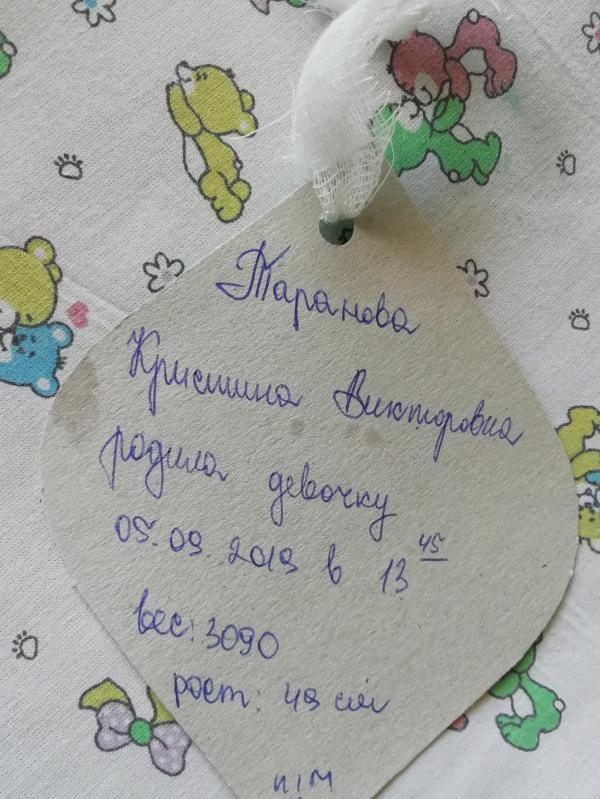 Таранова
Кристина Викторовна
родила девочку
05.09.2019 в 13 45
вес: 3090
рост: 49 см
п/м